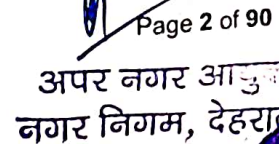 Page 2 of 90
अपर नगर
नगर निगम,